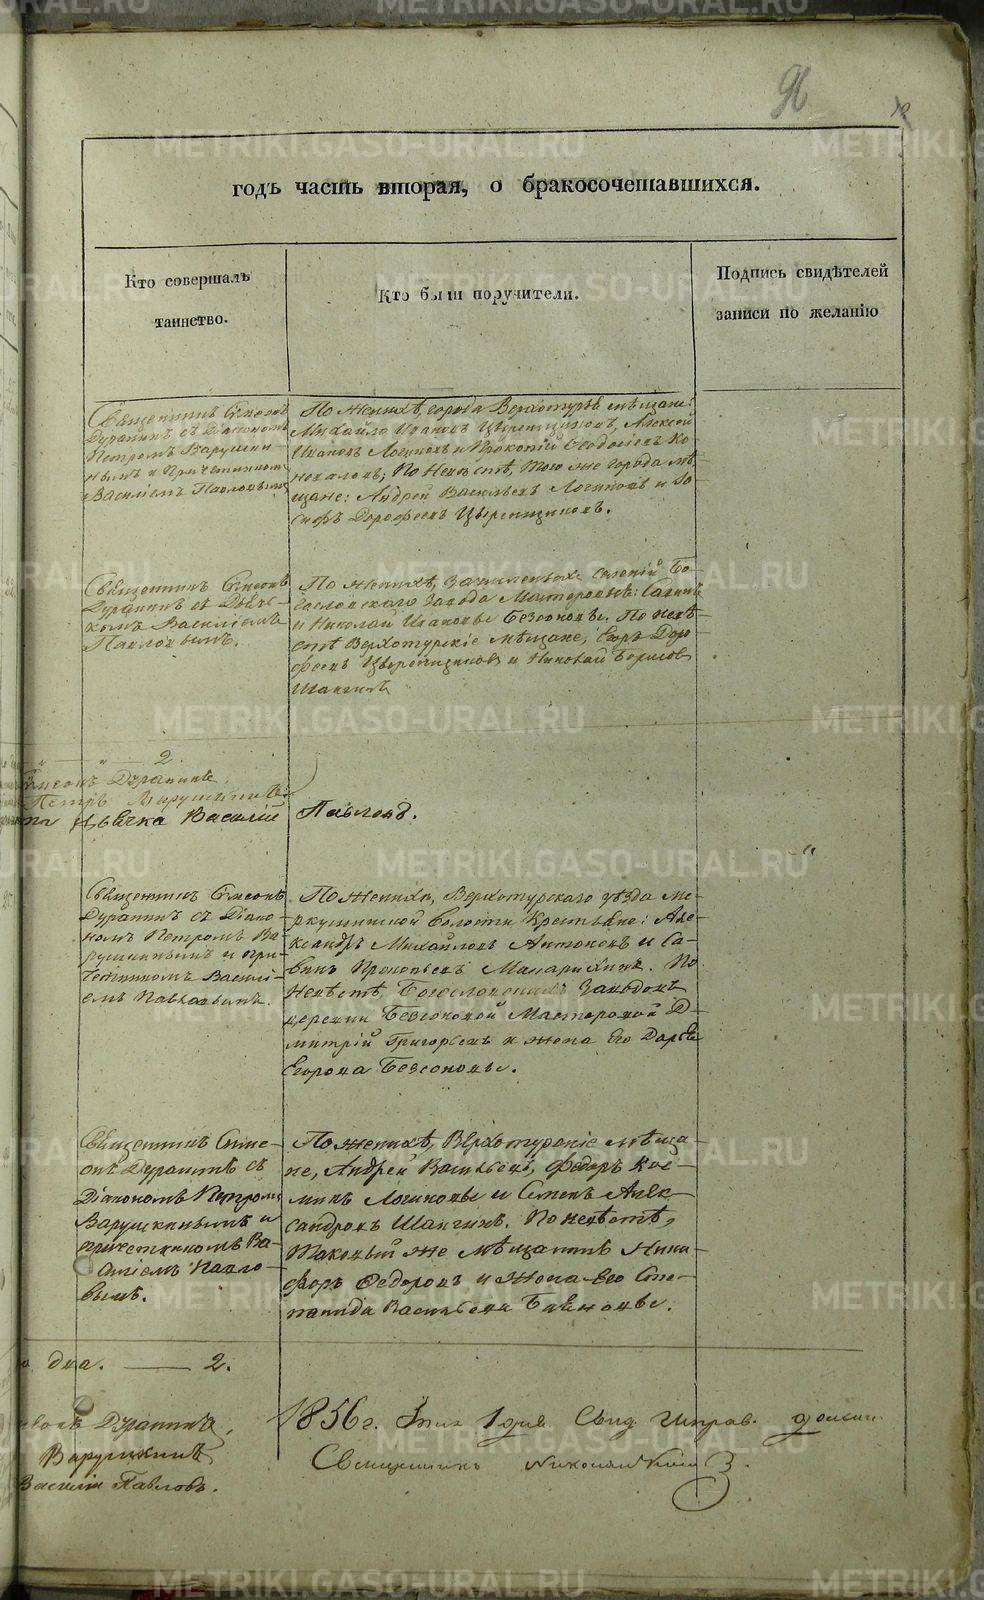 METRIKI.GASO-URAL.RU
96
годъ часть вторая, о бракосочетавшихся.
Кто совершалъ
таинство.
Кто были поручители.
Подпись свидѣтелей
записи по желанію
Священникъ Симеонъ
Дуранинъ съ Діакономъ
Петромъ Варушки-
нымъ и Причетникомъ
Василіемъ Павловымъ
По женихѣ, города Верхотурья мѣщане:
Михайло Ивановъ Цыренщиковъ, Алексѣй
Ивановъ Логиновъ и Прокопій Ѳеодосіевъ Ко
новаловъ; По Невѣстѣ, того же города мѣ
щане: Андрей Васильевъ Логиновъ и Іо
сифъ Дорофеевъ Цыренщиковъ.
Священникъ Симеонъ
Дуранинъ съ Дьяч-
комъ Василіемъ
Павловымъ.
По женихѣ, селеній Бо
гословскаго Завода Мастеровые:
и Николай Ивановы Безсоновы. По невѣ
стѣ Верхотурскіе мѣщане, Егоръ Доро
феевъ Цыренщиковъ и Николай Борисовъ
Шангинъ
2.
Симеонъ Дуранинъ.
Петръ Варушкинъ
Дьячка Василій Павловъ.
Священникъ Симеонъ
Дуранинъ съ Діако-
номъ Петромъ Ва
рушкинымъ и При-
четникомъ Василі-
емъ Павловымъ.
По Женихѣ, Верхотурскаго уѣзда Ме-
ркушинской Волости Крестьяне: Але-
ксандръ Михайловъ Антоновъ и Са-
винъ Прокопьевъ. По
Невѣстѣ, Богословскихъ Заводовъ
деревни Безсоновой Мастеровой Д-
митрій Григорьевъ и жена Его Дарья
Егорова Безсоновы.
Священникъ Симе-
онъ Дуранинъ съ
Діакономъ Петромъ
Варушкинымъ и
причетникомъ Ва-
силіемъ Павло-
вымъ.
По женихѣ, Верхотурскіе мѣща-
не, Андрей Васильевъ, Федоръ Кос-
минъ Логиновы и Семенъ Алек-
сандровъ Шангинъ. По невѣстѣ,
Таковый же мѣщанинъ Ники-
форъ Федоровъ и Жена Его Сте-
панида Васильева
два. — 2.
Дуранинъ,
Варушкинъ
Василій Павловъ.
1856 г. 1 дня Свид.
Священникъ